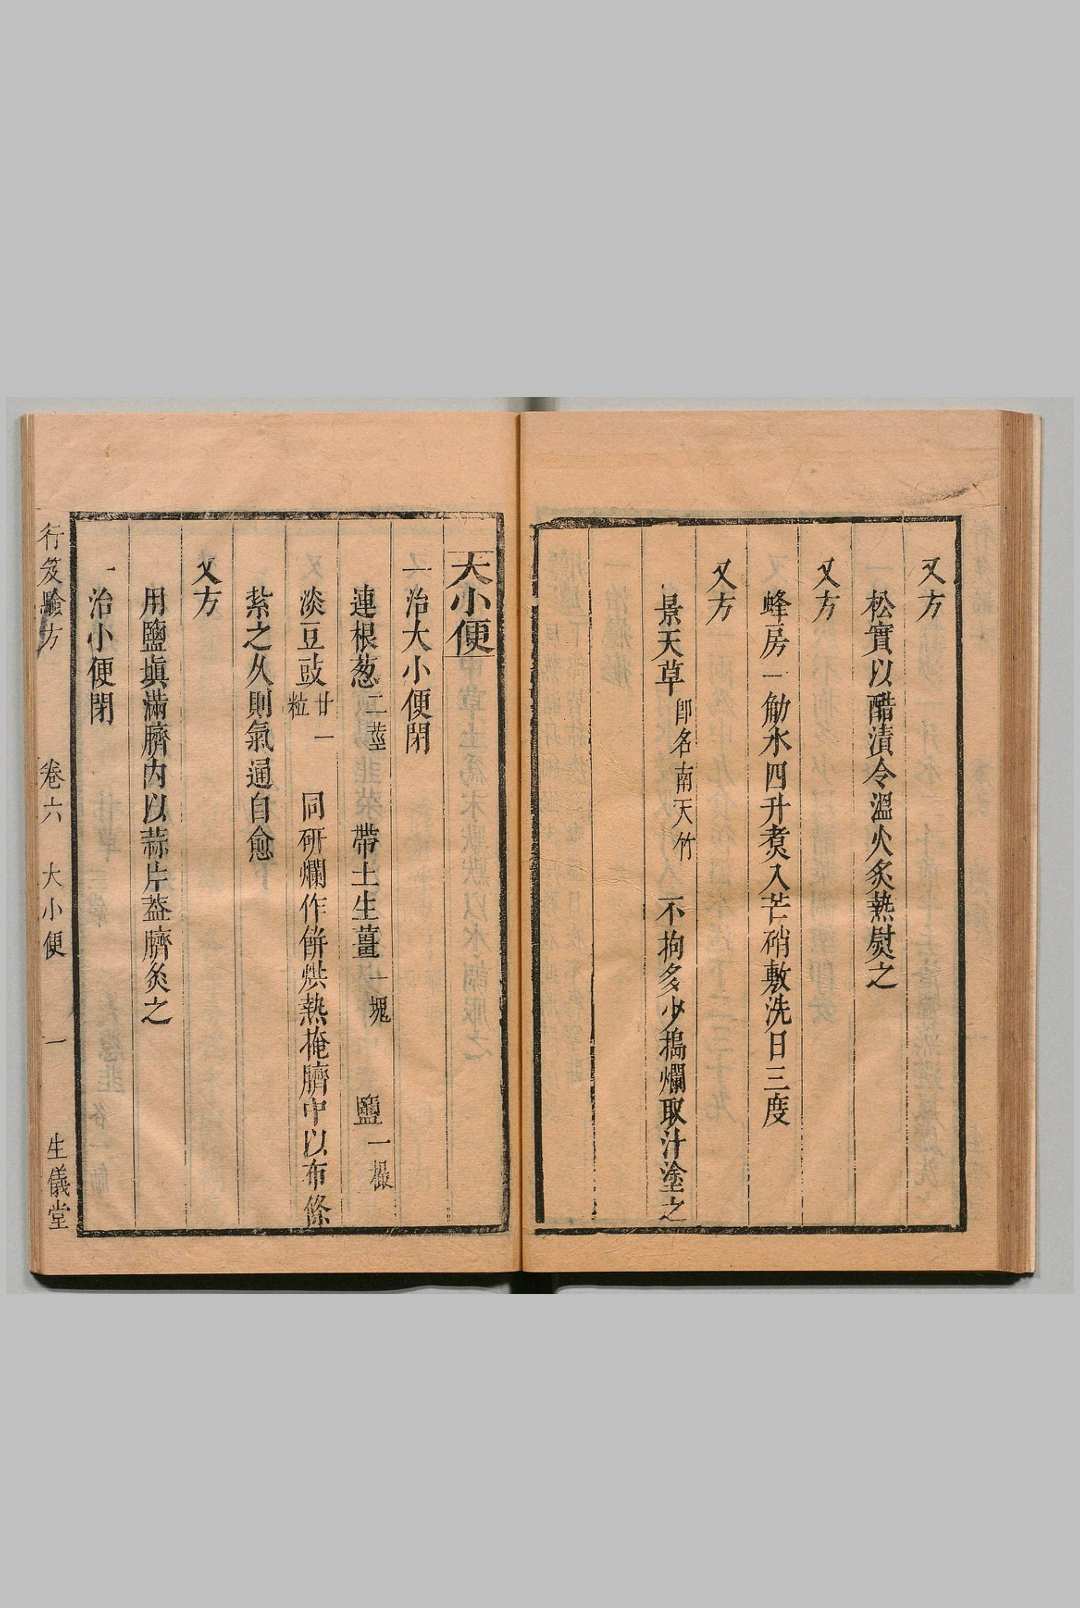 又方
松實以醋漬令溫火炙熱熨之
又方
蜂房一觔水四升煮入芒硝敷洗日三度
又方
景天草卽名南天竹 不拘多少搗爛取汁塗之
大小便
一治大小便閉
連根葱二莖 帶土生薑一塊 鹽一撮
淡豆豉廿一粒 同研爛作餅烘熱掩臍中以布條
紮之久則氣通自愈
又方
用鹽塡滿臍內以蒜片葢臍灸之
一治小便閉
行笈驗方 卷六 大小便 一 生儀堂